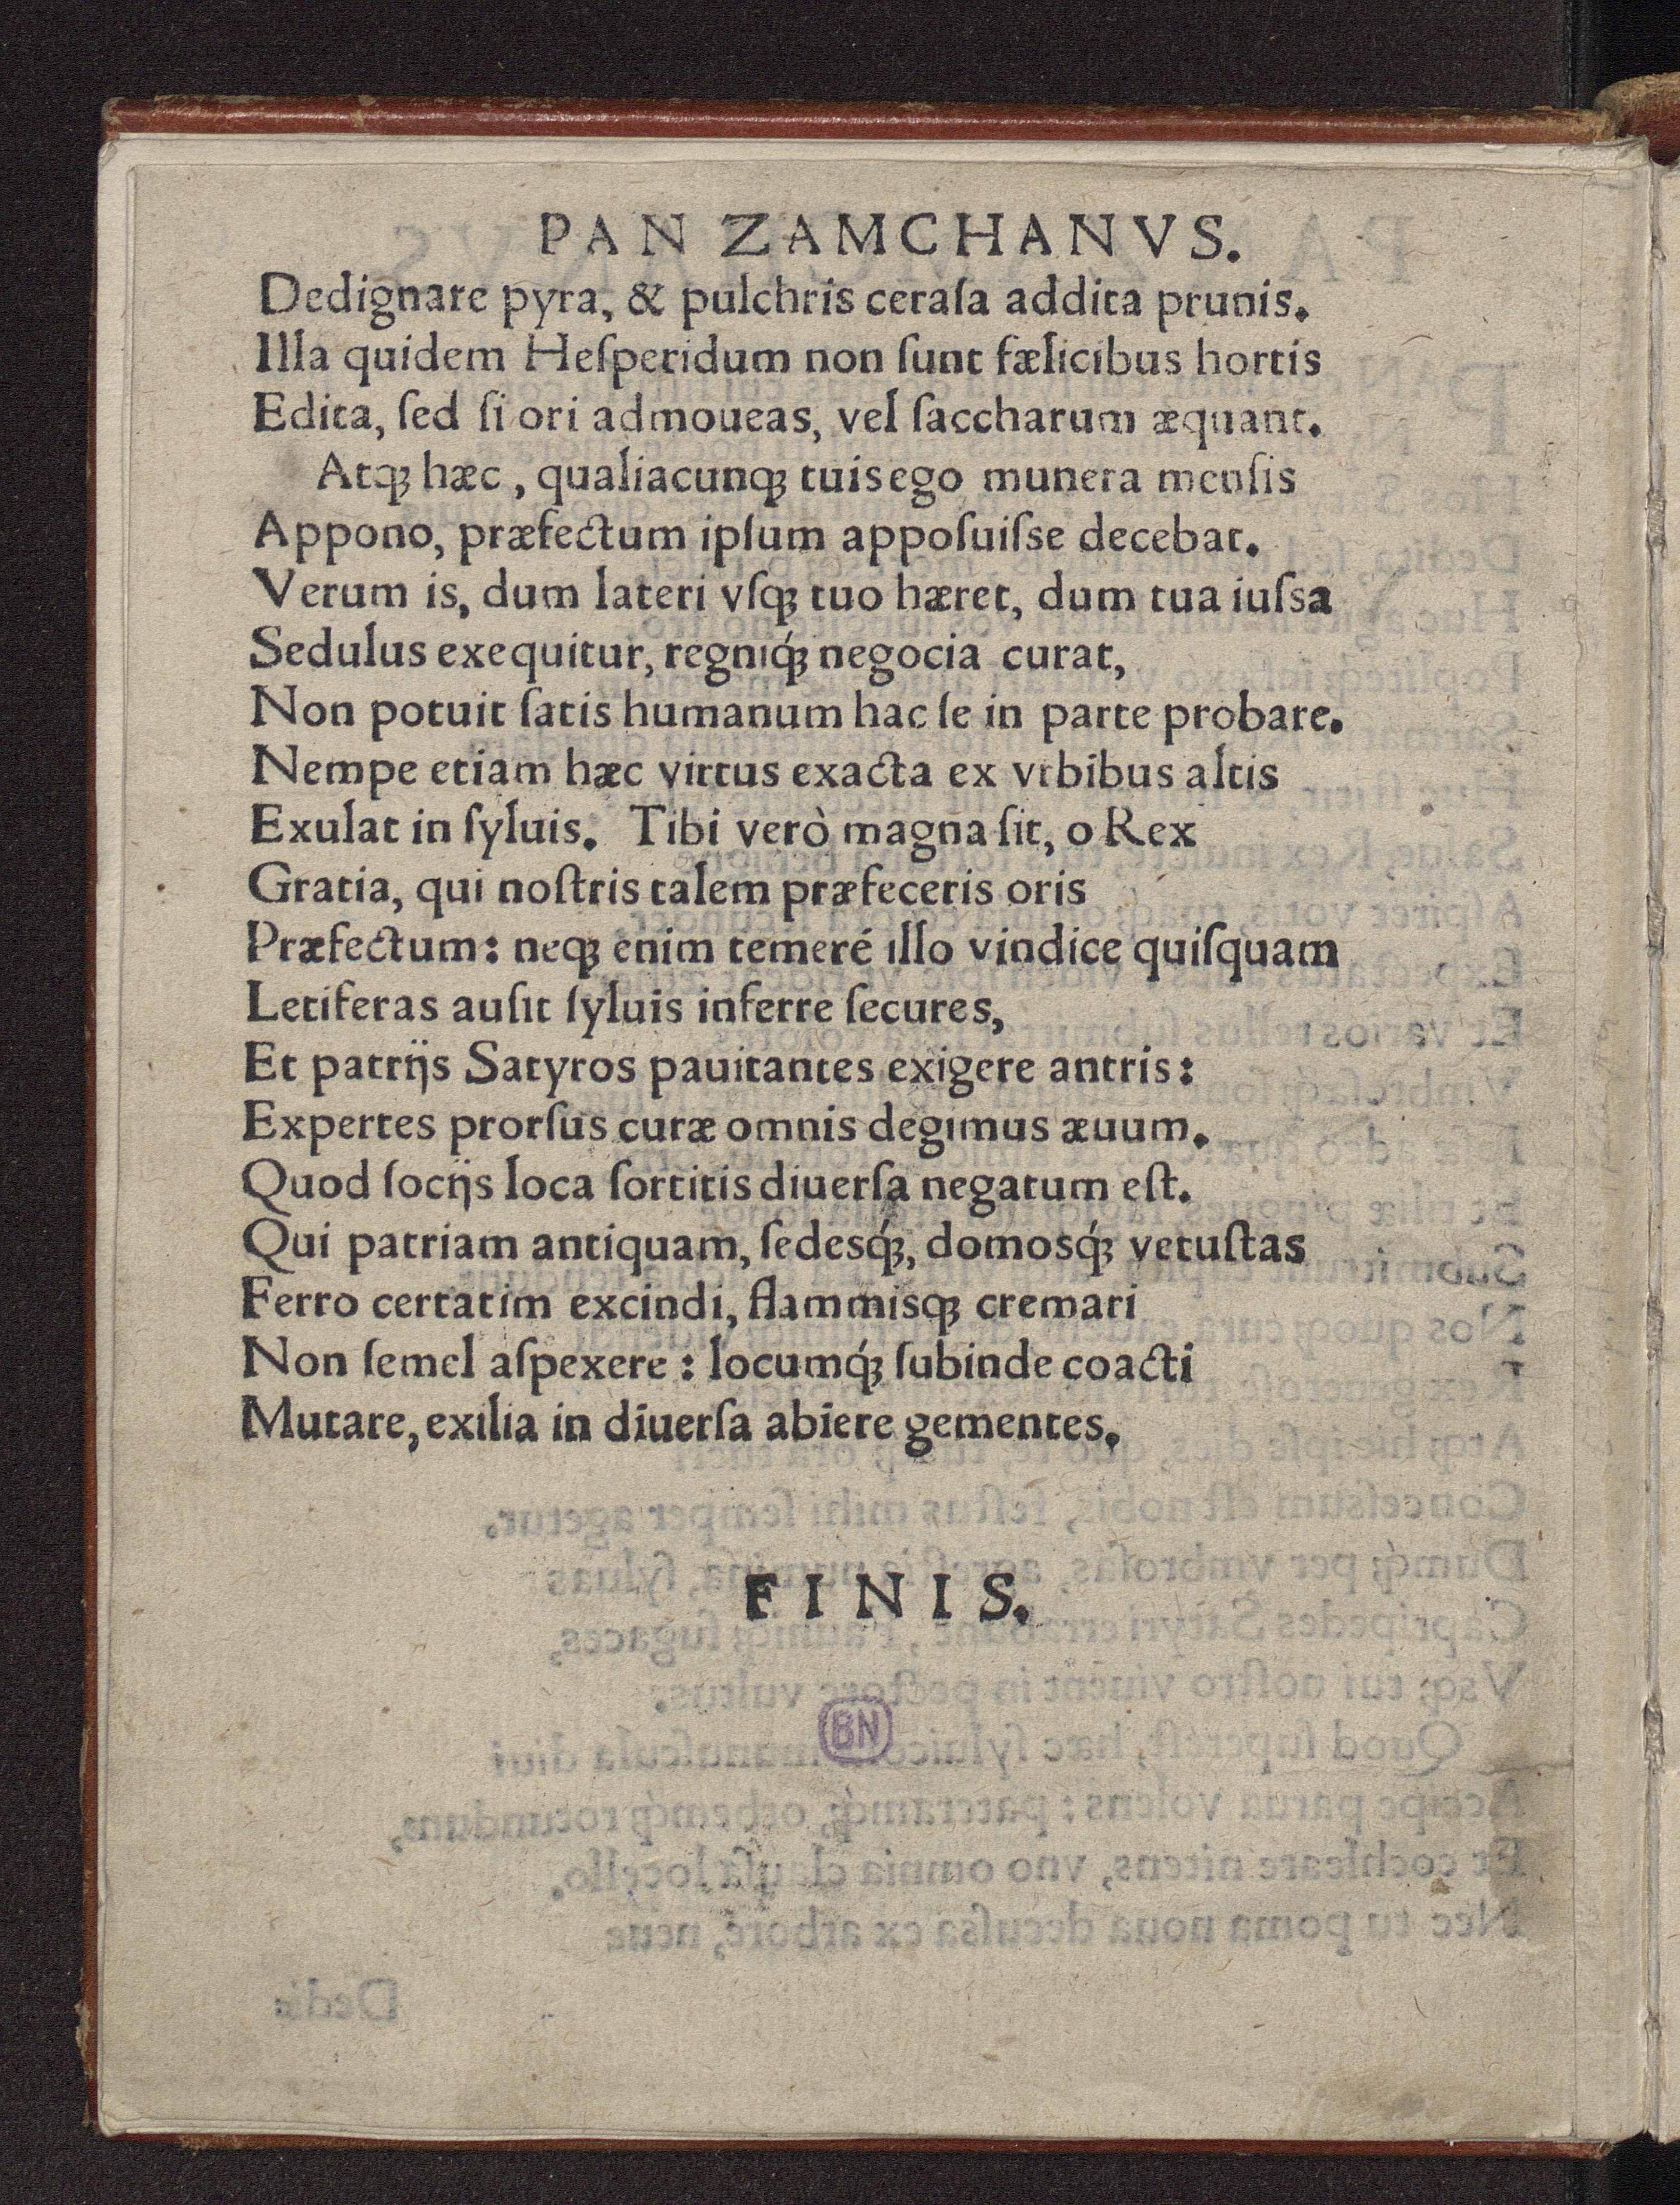 PAN ZAMCHANVS.
Dedignare pyra, & pulchris ceraſa addita prunis.
Illa quidem Heſperidum non ſunt fælicibus hortis
Edita, ſed ſi ori admoueas, vel ſaccharum æquant.
Atqꝫ hæc, qualiacunqꝫ tuis ego munera menſis
Appono, præfectum ipſum appoſuiſse decebat.
Verum is, dum lateri vſqꝫ tuo hæret, dum tua iuſsa
Sedulus exequitur, regniq́ꝫ negocia curat,
Non potuit ſatis humanum hac ſe in parte probare.
Nempe etiam hæc virtus exacta ex vrbibus altis
Exulat in ſyluis. Tibi verò magna ſit, o Rex
Gratia, qui noſtris talem præfeceris oris
Præfectum: neqꝫ enim temeré illo vindice quiſquam
Letiferas auſit ſyluis inferre ſecures,
Et patrijs Satyros pauitantes exigere antris:
Expertes prorſus curæ omnis degimus æuum.
Quod ſocijs loca ſortitis diuerſa negatum eſt.
Qui patriam antiquam, ſedesq́ꝫ, domosq́ꝫ vetuſtas
Ferro certatim excindi, flammisqꝫ cremari
Non ſemel aſpexere: locumq́ꝫ ſubinde coacti
Mutare, exilia in diuerſa abiere gementes.
FINIS.
BN